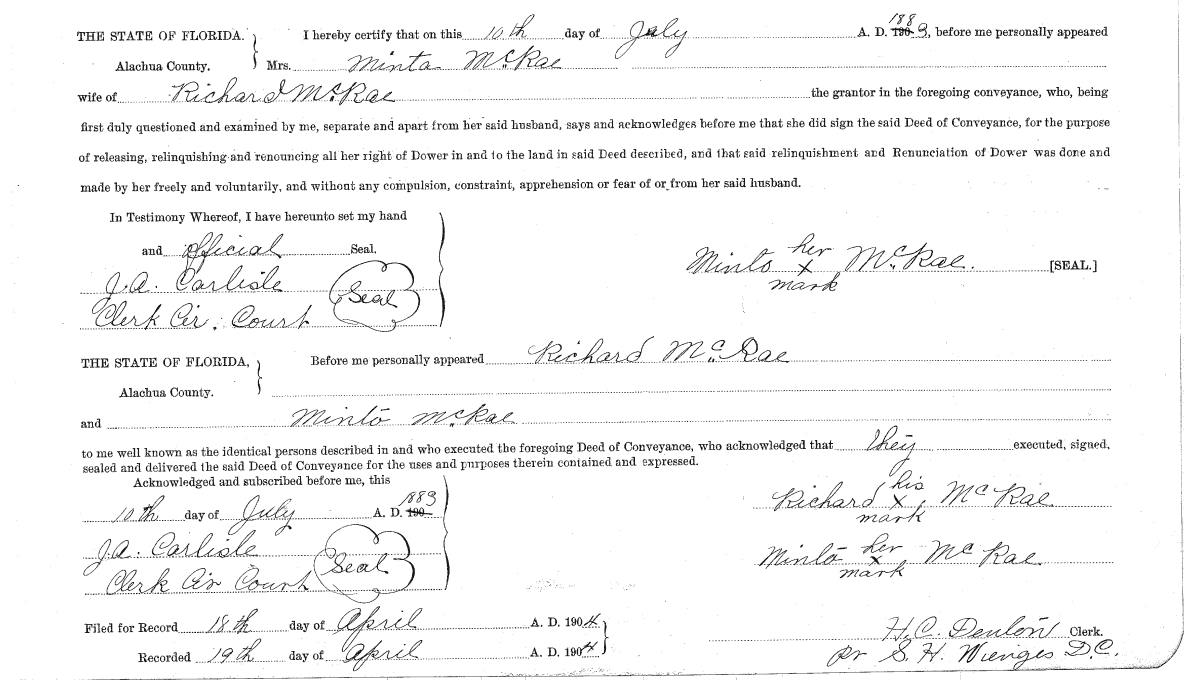 THE STATE OF FLORIDA. I hereby certify that on this 10th day of July A. D. 190 1883, before me personally appeared
Alachua County. Mrs. Minta McRae
wife of Richard McRae the grantor in the foregoing conveyance, who, being
first duly questioned and examined by me, separate and apart from her said husband, says and acknowledges before me that she did sign the said Deed of Conveyance, for the purpose
of releasing, relinquishing and renouncing all her right of Dower in and to the land in said Deed described, and that said relinquishment and Renunciation of Dower was done and
made by her freely and voluntarily, and without any compulsion, constraint, apprehension or fear of or from her said husband.
In Testimony Whereof, I have hereunto set my hand
and official Seal.
Minto her x mark McRae. [SEAL.]
J.A. Carlisle
Clerk Cir. Court
Seal
THE STATE OF FLORIDA, Before me personally appeared Richard McRae
Alachua County.
and Minto McRae
to me well known as the identical persons described in and who executed the foregoing Deed of Conveyance, who acknowledged that they executed, signed,
sealed and delivered the said Deed of Conveyance for the uses and purposes therein contained and expressed.
Acknowledged and subscribed before me, this
10th day of July A. D. 190 1883
Richard his x mark McRae
J.A. Carlisle
Clerk Cir Court
Seal
Minto her x mark McRae
Filed for Record 18th day of April A. D. 1904
H.C. Denton Clerk.
Recorded 19th day of April A. D. 1904
pr S. H. Wienges D.C.